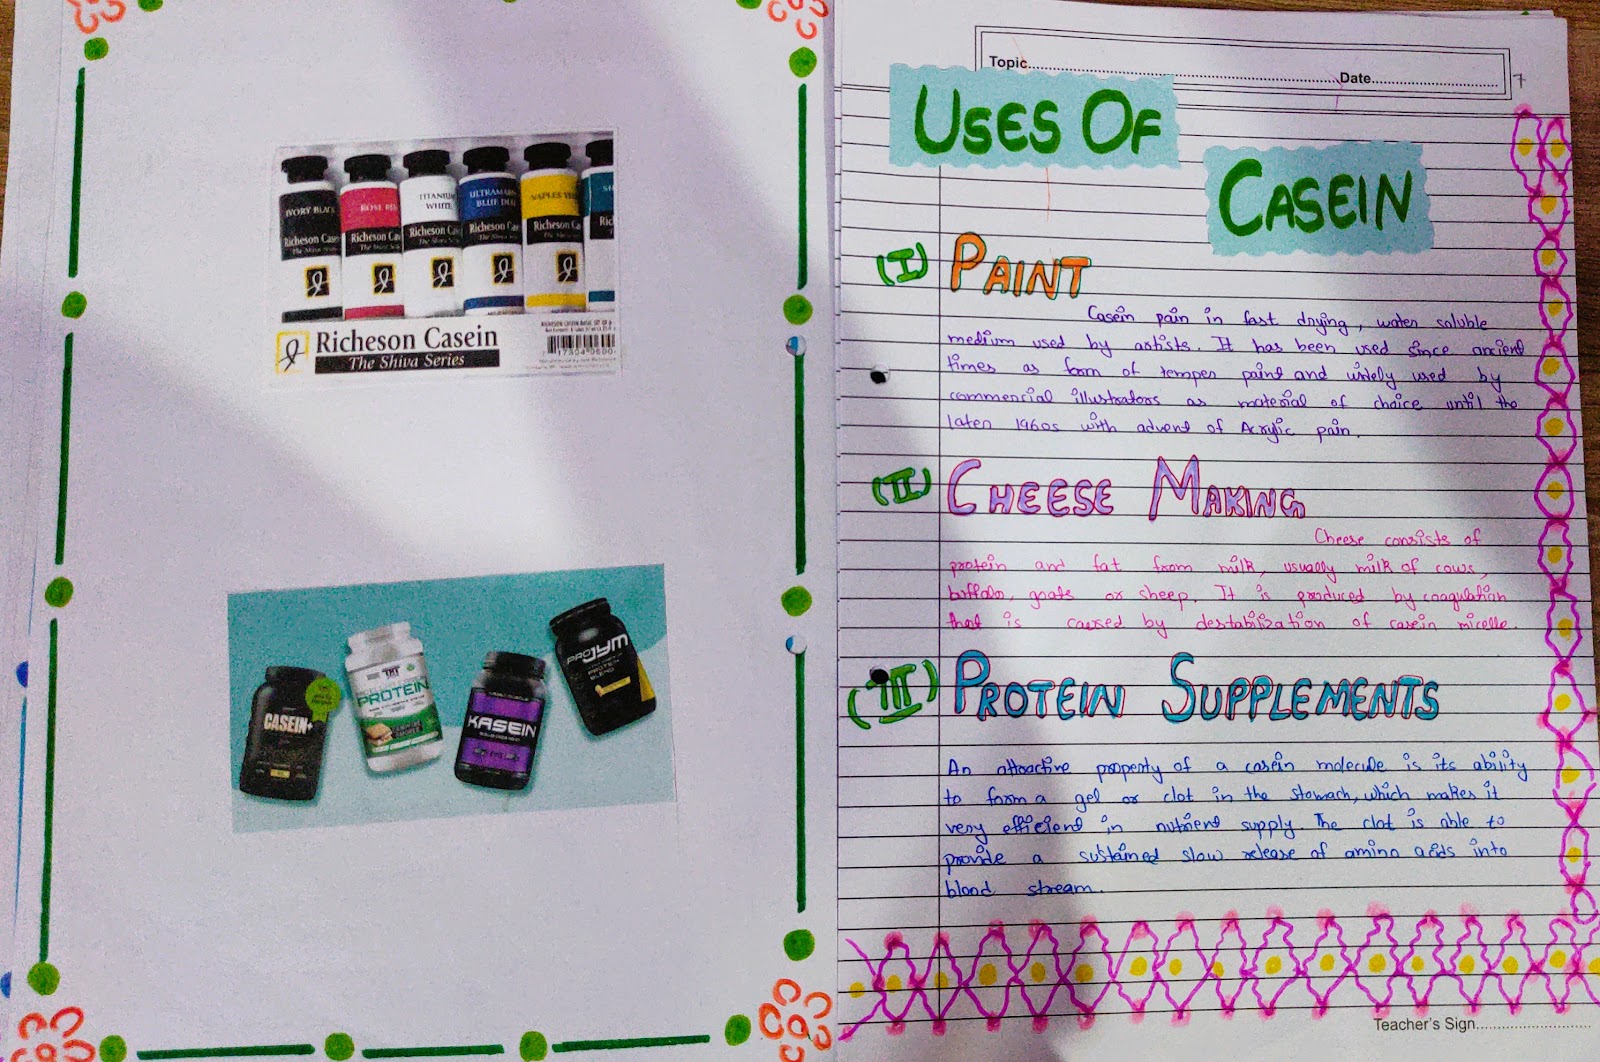 IVORY BLACK
ROSE RED
TITANIUM
WHITE
ULTRAMARINE
BLUE DEEP
NAPLES YE
SH
Richeson Casein
Richeson Ca
Richeson Cas
Richeson Ca
Richeson Ca
Rich
The Shiva Series
Richeson Casein
The Shiva Series
RICHESON CASEIN BASIC SET OF 6
CASEIN+
TNT
PROTEIN
KASEIN
PROJYM
PROTEIN
BLEND
Topic
Date
7
USES OF
CASEIN
(I) PAINT
Casein pain in fast drying, water soluble
medium used by artists. It has been used since ancient
times as form of temper paint and widely used by
commencial illustrators as material of choice until the
later 1960s with advend of Acrylic pain.
(II) CHEESE MAKING
Cheese consists of
protein and fat from milk, usually milk of cows,
buffalo, goats or sheep. It is produced by coagulation
that is caused by destabilization of casein micelle.
(III) PROTEIN SUPPLEMENTS
An attractive property of a casein molecule is its ability
to form a gel or clot in the stomach, which makes it
very efficiend in nutriend supply. The clot is able to
provide a sustained slow release of amino acids into
blood stream.
Teacher's Sign